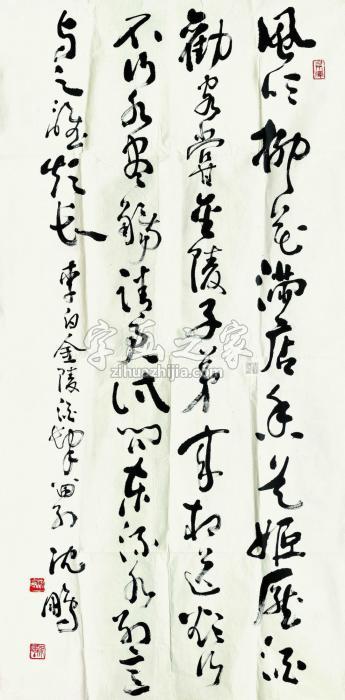 風吹柳花滿店香吳姬壓酒
勸客嘗金陵子弟來相送欲行
不行各盡觴請君試問東流水別意
與之誰短長 李白金陵酒肆留別 沈鵬
字画之家
zihuazhijia.com